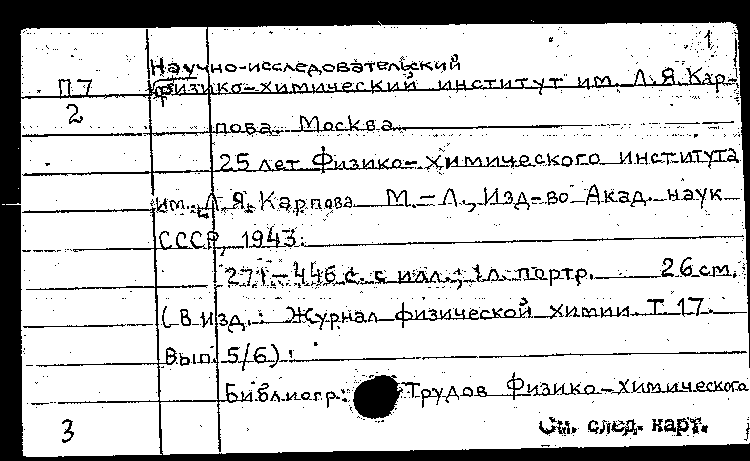 1
Научно-исследовательский
П7 физико-химический институт им. Л.Я. Кар-
2 пова. Москва.
25 лет Физико-химического института
им. Л.Я. Карпова М.-Л., Изд-во Акад. наук
СССР, 1943.
271-446 с. с илл.; 1 л. портр. 26 см.
(В изд.: Журнал физической химии. Т. 17.
Вып. 5/6).
Библиогр.: Трудов Физико-химического
3 См. след. карт.